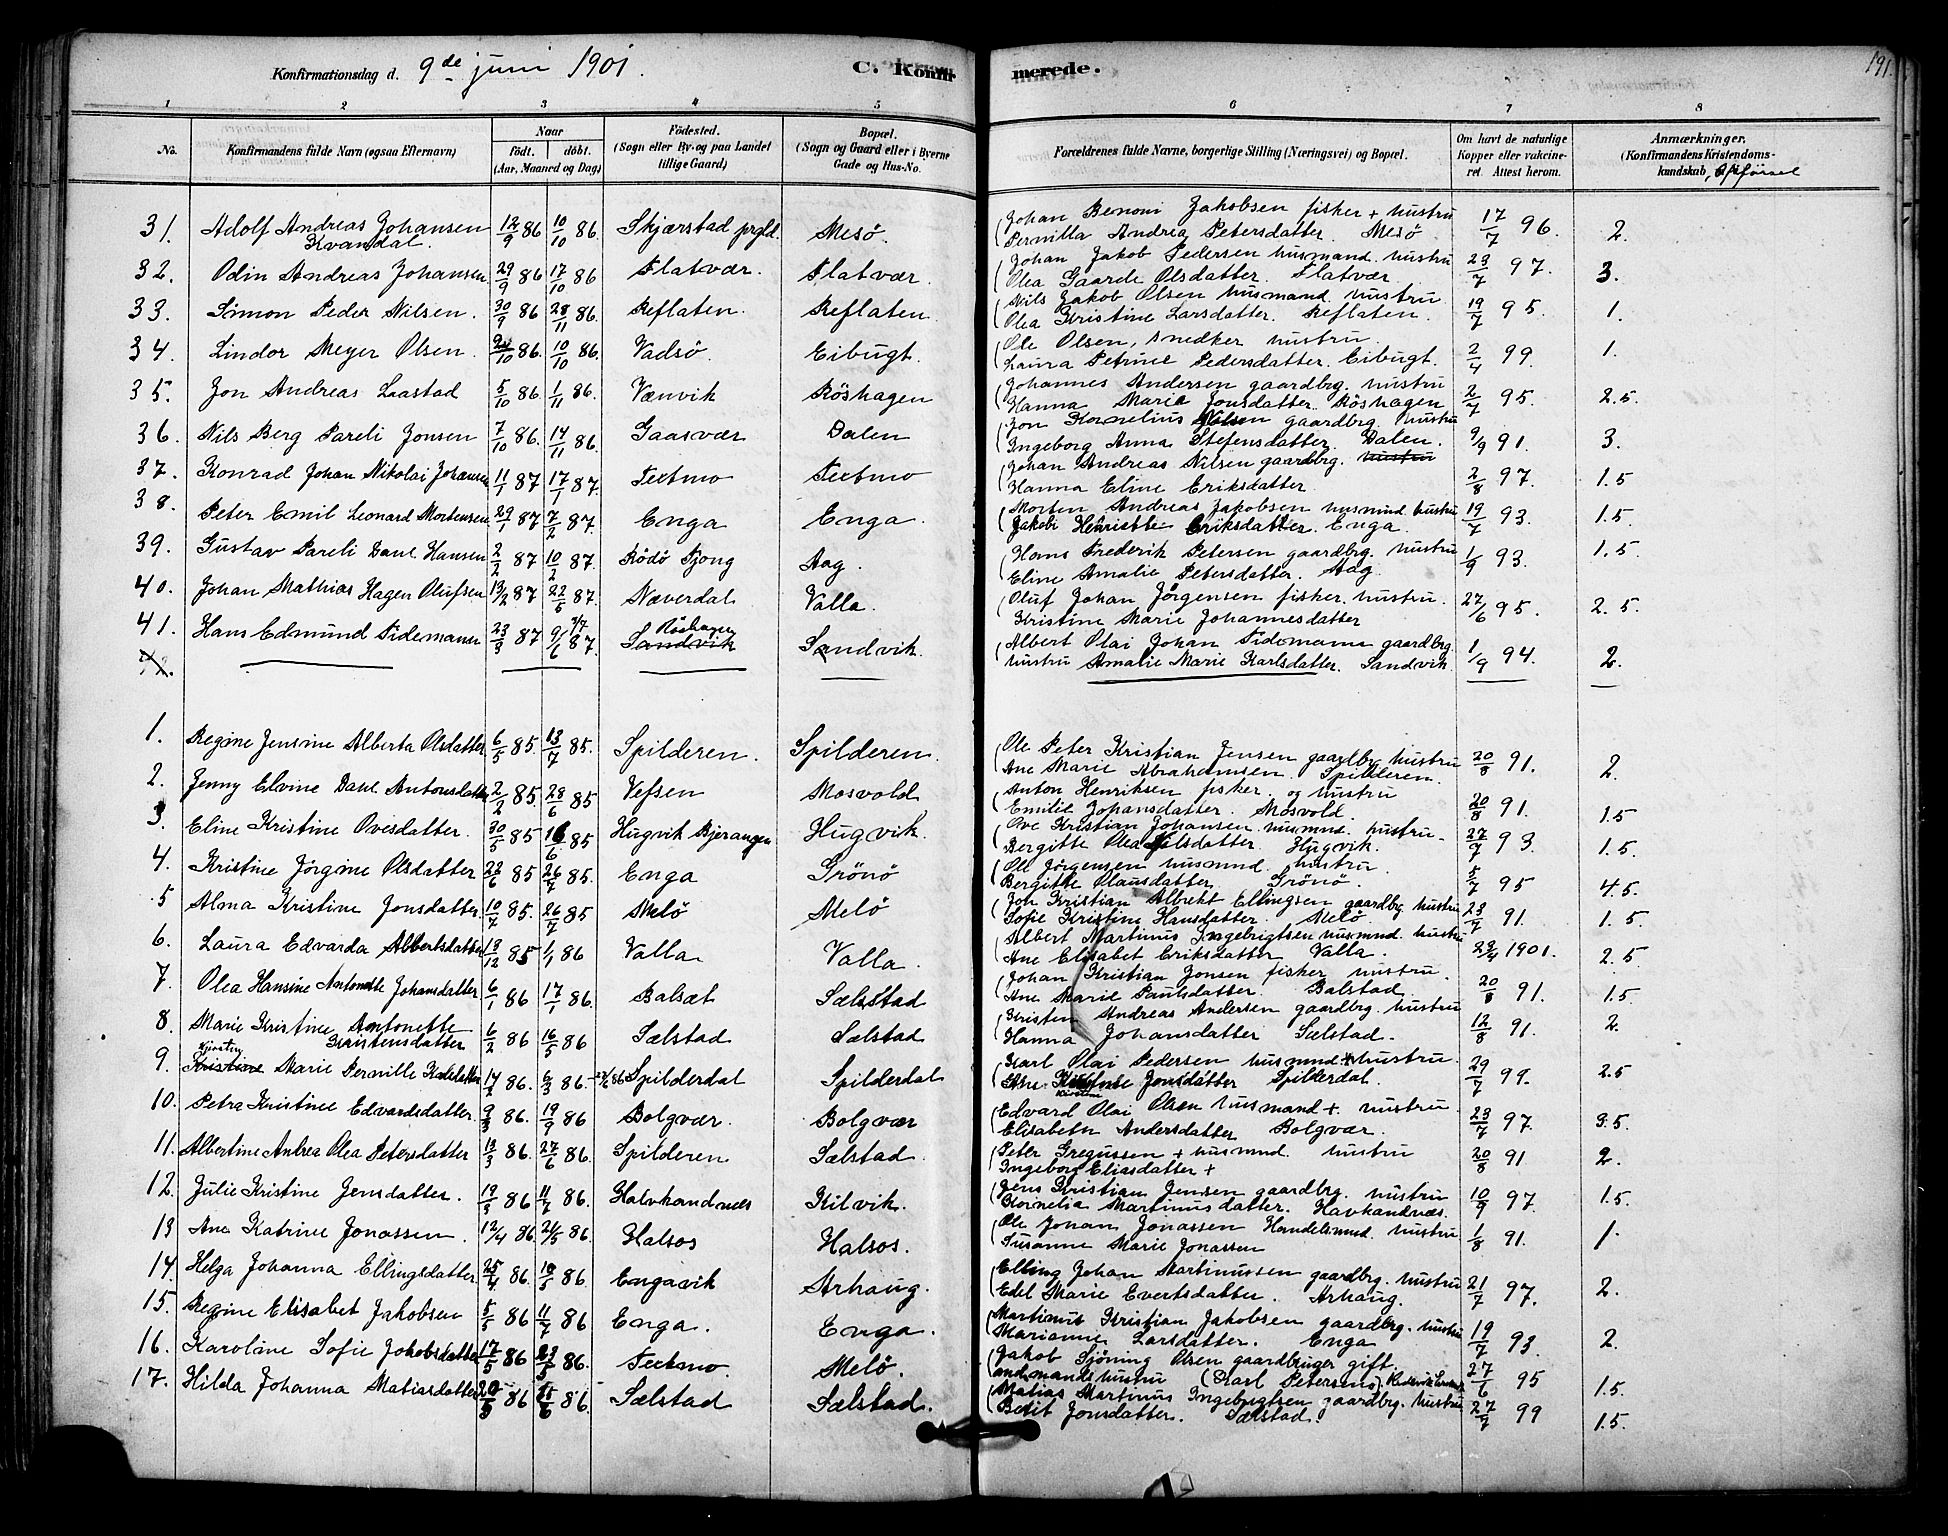 Konfirmationsdag d. 9de juni 1901. C. Konfirmerede. 191.
1 2 3 4 5 6 7 8
No. Konfirmandens fulde Navn (ogsaa Efternavn) Naar Födt. döbt. (Aar, Maaned og Dag) Födested. (Sogn eller By- og paa Landet tillige Gaard) Bopæl. (Sogn og Gaard eller i Byerne Gade og Hus-No. Forældrenes fulde Navne, borgerlige Stilling (Næringsvei) og Bopæl. Om havt de naturlige Kopper eller vakcineret. Attest herom. Anmærkninger. (Konfirmandens Kristendomskundskab, Opförsel
31. Adolf Andreas Johansen Kvandal. 12/9 86 10/10 86. Skjærstad prgld. Mesö. Johan Benoni Jakobsen fisker + hustru Pernilla Andrea Petersdatter. Mesö 17/7 96. 2.
32. Odin Andreas Johansen 29/9 86 17/10 86 Flatvær. Flatvær. Johan Jakob Pedersen husmand. hustru Olea Gaarde Olsdatter. Flatvær 23/7 97. 3.
33. Simon Peder Nilsen. 30/9 86 28/11 86. Reflaten. Reflaten. Nils Jakob Olsen husmand. hustru Olea Kristine Larsdatter. Reflaten. 19/7 95. 1.
34. Lindor Meyer Olsen. 10 86. 10/10 86. Vadsö. Eibugt. Ole Olsen, snedker hustru. Laura Petrine Pedersdatter. Eibugt. 2/4 99. 1.
35. Jon Andreas Laastad 5/10 86 1/11 86. Vænvik Röshagen Johannes Andersen gaardbrg. hustru Hanna Marie Jonsdatter. Röshagen 2/7 95. 2.5.
36. Nils Berg Pareli Jonsen 7/10 86. 14/11 86. Gaasvær Dalen Jon Kornelius Nilsen gaardbrg. hustru Ingeborg Anna Stefensdatter. Dalen. 9/9 91. 3.
37. Konrad Johan Nikolai Johansen 11/1 87 17/1 87. Teetmo Teetmo Johan Andreas Nilsen gaardbrg. hustru Hanna Eline Eriksdatter 2/8 97. 1.5
38. Peter Emil Leonard Mortensen 29/1 87 7/2 87. Enga Enga. Morten Andreas Jakobsen husmnd hustru Jakobi Henriette Eriksdatter. Enga. 19/7 93. 1.5.
39. Gustav Pareli Dahl Hansen 2/2 87 10/2 87. Rödö Tjong Aag. Hans Frederik Petersen gaardbrg. hustru Eline Amalie Petersdatter. Aag. 1/9 93. 1.5
40. Johan Mathias Hagen Olufsen 13/2 87 22/5 87. Næverdal Valla. Oluf Johan Jörgensen fisker. hustru. Kristine Marie Johannesdatter 27/6 95. 2.5.
41. Hans Edmund Tidemann 23/3 87 9/6 87. 7/7 Röshagen Sandvik Sandvik. Albert Olai Johan Tidemann gaardbrg. hustru Amalie Marie Karlsdatter. Sandvik. 1/9 94. 2.
42.
1. Regine Jensine Alberta Olsdatter 6/5 85. 13/7 85. Spilderen. Spilderen. Ole Peter Kristian Jensen gaardbrg hustru Ane Marie Abrahamsen. Spilderen. 20/8 91. 2.
2. Jenny Elvine Dahl Antonsdatter 2/2 85. 28/6 85 Vefsen Mosvold Anton Henriksen fisker. og hustru Emilie Johansdatter. Mosvold. 20/8 91. 1.5
3. Eline Kristine Ovesdatter. 30/5 85 16/6 85 Hugvik Bjerangen Hugvik. Ove Kristian Johansen husmnd. hustru. Bergitte Olea Nilsdatter. Hugvik. 27/7 93. 1.5.
4. Kristine Jörgine Olsdatter 22/6 85 26/7 85. Enga Grönö Ole Jörgensen husmnd. hustru Bergitte Olausdatter Grönö. 5/7 95 4.5.
5 Alma Kristine Jonsdatter. 10/7 85. 26/7 85 Melö Melö Jon Kristian Albrekt Ellingsen gaardbrg. hustru Sofie Kristine Hansdatter. Melö 23/7 91. 1.5.
6. Laura Edvarda Albertsdatter 13/12 85 1/1 86 Valla Valla. Albert Martinus Ingebrigtsen husmnd. hustru Ane Elisabet Eriksdatter Valla. 23/4 1901. 2.5
7. Olea Hansine Antonette Johansdatter 6/1 86 17/1 86. Balsæt Sælstad Johan Kristian Jonsen fisker hustru. Ane Marie Paulsdatter. Balstad 20/8 91. 1.5
8. Marie Kristine Antonette Kristensdatter 6/2 86 16/5 86 Sælstad Sælstad Kristen Andreas Andersen gaardbrg. hustru Hanna Johansdatter Sælstad. 12/8 91. 2.
9. Kirstin Kristine Marie Pernille Karlsdatter 14/2 86. 6/3 86. 27/6 86 Spilderdal Spilderdal Karl Olai Pedersen husmnd + hustru. Ane Jonsdatter Spilderdal. 29/7 99. 2.5
10. Petra Kristine Edvardsdatter. 9/3 86. 19/9 86 Bolgvær. Bolgvær Edvard Olai Olsen husmand +. hustru Elisabeth Andersdatter Bolgvær. 23/7 97. 3.5.
11. Albertine Andrea Olea Petersdatter 13/3 86. 27/6 86. Spilderen Sælstad. Peter Gregussen + husmnd. hustru Ingeborg Eliasdatter + 20/8 91 2.
12. Julie Kristine Jensdatter. 19/3 86 11/7 86. Halvkandnes Kilvik. Jens Kristian Jensen gaardbrg. hustru Kornelia Martinusdatter. Havkandnæs. 10/9 97. 1.5.
13 Ane Katrine Jonassen. 12/4 86. 24/5 86. Halsos Halsos. Ole Johan Jonassen Handelsmnd. hustru Susanne Marie Jonassen 1/8 91. 1.
14. Helga Johanna Ellingsdatter 25/4 86. 10/5 86. Engavik Arhaug. Elling Johan Martinussen gaardbrg. hustru Edel Marie Evertsdatter. Arhaug. 21/7 97. 2.
15. Regine Elisabet Jakobsen 5/5 86 11/7 86 Enga. Enga. Martinus Kristian Jakobsen gaardbrg. hustru Marianne Larsdatter. Enga 19/7 93 2.
16. Karoline Sofie Jakobsdatter 17/5 86 86. Teetmo. Melö. Jakob Sjöning Olsen gaardbruger gift. andmands hustru (Karl Petersens) 27/6 95 1.5.
17. Hilda Johanna Matiasdatter 86 86. Sælstad Sælstad. Matias Martinus Ingebrigtsen gaardbrg. hustru Berit Jonsdatter. Sælstad. 27/7 99 1.5.